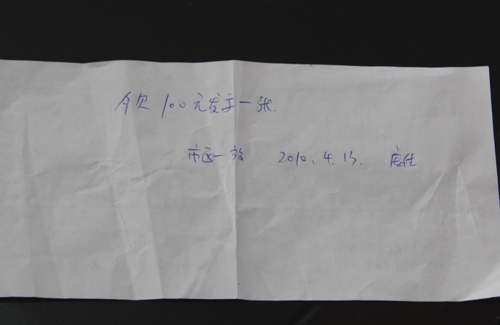 今欠100元发票一张
市区一 2010.4.13.